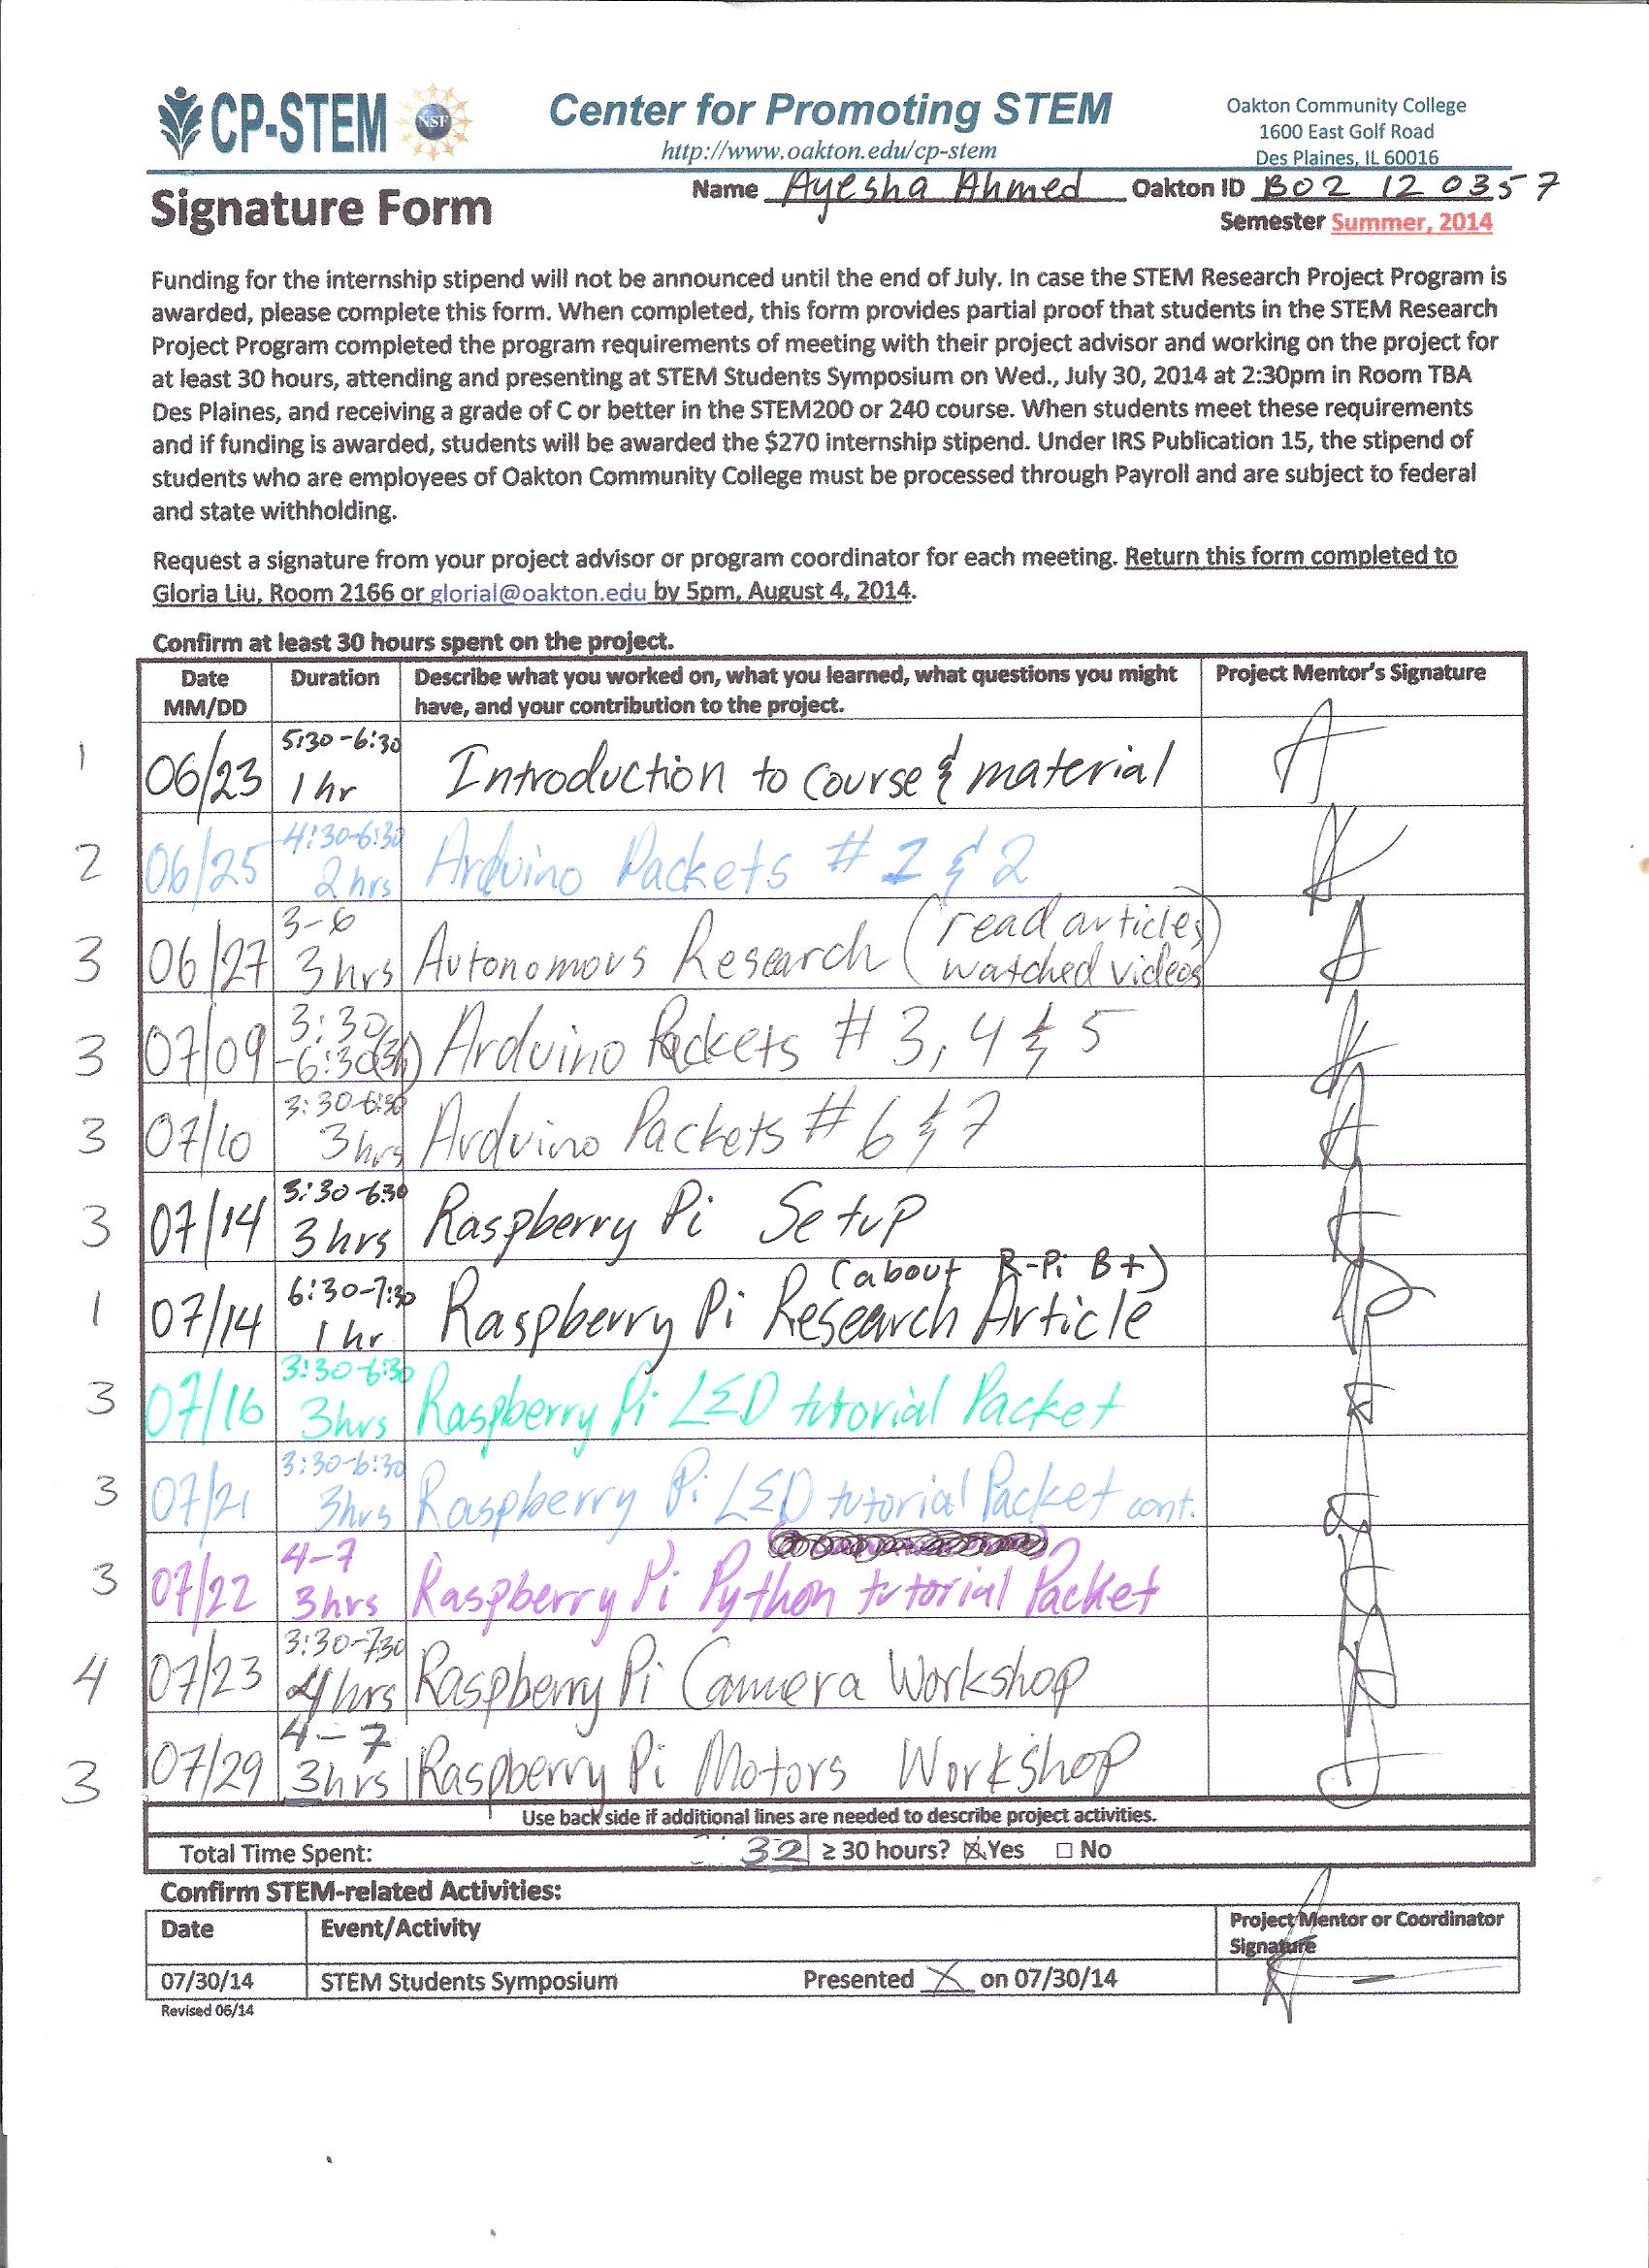 CP-STEM
NSF
Center for Promoting STEM
http://www.oakton.edu/cp-stem
Oakton Community College
1600 East Golf Road
Des Plaines, IL 60016
Signature Form
Name Ayesha Ahmed Oakton ID B02 12 0357
Semester Summer, 2014
Funding for the internship stipend will not be announced until the end of July. In case the STEM Research Project Program is
awarded, please complete this form. When completed, this form provides partial proof that students in the STEM Research
Project Program completed the program requirements of meeting with their project advisor and working on the project for
at least 30 hours, attending and presenting at STEM Students Symposium on Wed., July 30, 2014 at 2:30pm in Room TBA
Des Plaines, and receiving a grade of C or better in the STEM200 or 240 course. When students meet these requirements
and if funding is awarded, students will be awarded the $270 internship stipend. Under IRS Publication 15, the stipend of
students who are employees of Oakton Community College must be processed through Payroll and are subject to federal
and state withholding.
Request a signature from your project advisor or program coordinator for each meeting. Return this form completed to
Gloria Liu, Room 2166 or glorial@oakton.edu by 5pm, August 4, 2014.
Confirm at least 30 hours spent on the project.
Date
MM/DD
Duration
Describe what you worked on, what you learned, what questions you might
have, and your contribution to the project.
Project Mentor's Signature
1 06/23 5:30-6:30
1 hr
Introduction to course & material
2 06/25 4:30-6:30
2 hrs
Arduino Packets # 1 & 2
3 06/27 3-6
3 hrs
Autonomous Research (read articles
watched videos)
3 07/09 3:30
-6:30(3h)
Arduino Packets # 3, 4 & 5
3 07/10 3:30-6:30
3 hrs
Arduino Packets # 6 & 7
3 07/14 3:30-6:30
3 hrs
Raspberry Pi Setup
1 07/14 6:30-7:30
1 hr
(about R-Pi B+)
Raspberry Pi Research Article
3 07/16 3:30-6:30
3hrs
Raspberry Pi LED tutorial Packet
3 07/21 3:30-6:30
3hrs
Raspberry Pi LED tutorial Packet cont.
3 07/22 4-7
3hrs
Raspberry Pi Python tutorial Packet
4 07/23 3:30-7:30
4 hrs
Raspberry Pi Camera Workshop
3 07/29 4-7
3hrs
Raspberry Pi Motors Workshop
Use back side if additional lines are needed to describe project activities.
Total Time Spent: 32 ≥ 30 hours? ☒ Yes ☐ No
Confirm STEM-related Activities:
Date Event/Activity Project Mentor or Coordinator
Signature
07/30/14 STEM Students Symposium Presented X on 07/30/14
Revised 06/14